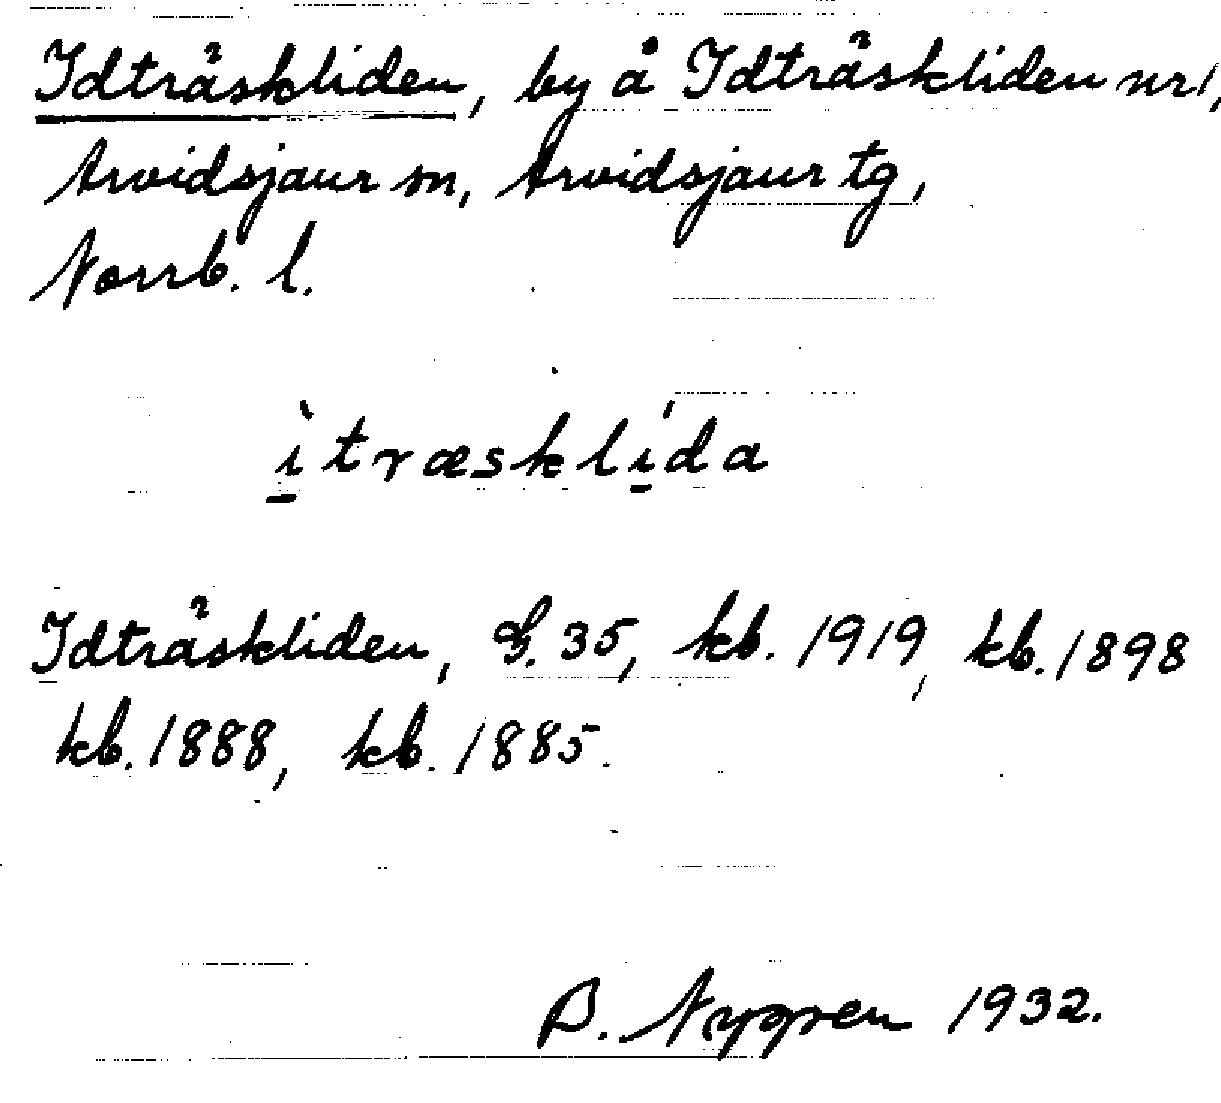 Idträskliden, by å Idträskliden nr 1,
Arvidsjaur sn, Arvidsjaur tg,
Norrb. l.
ì̱træsklí̱da
Idträskliden, G. 35, kb. 1919, kb. 1898
kb. 1888, kb. 1885.
B. Nygren 1932.